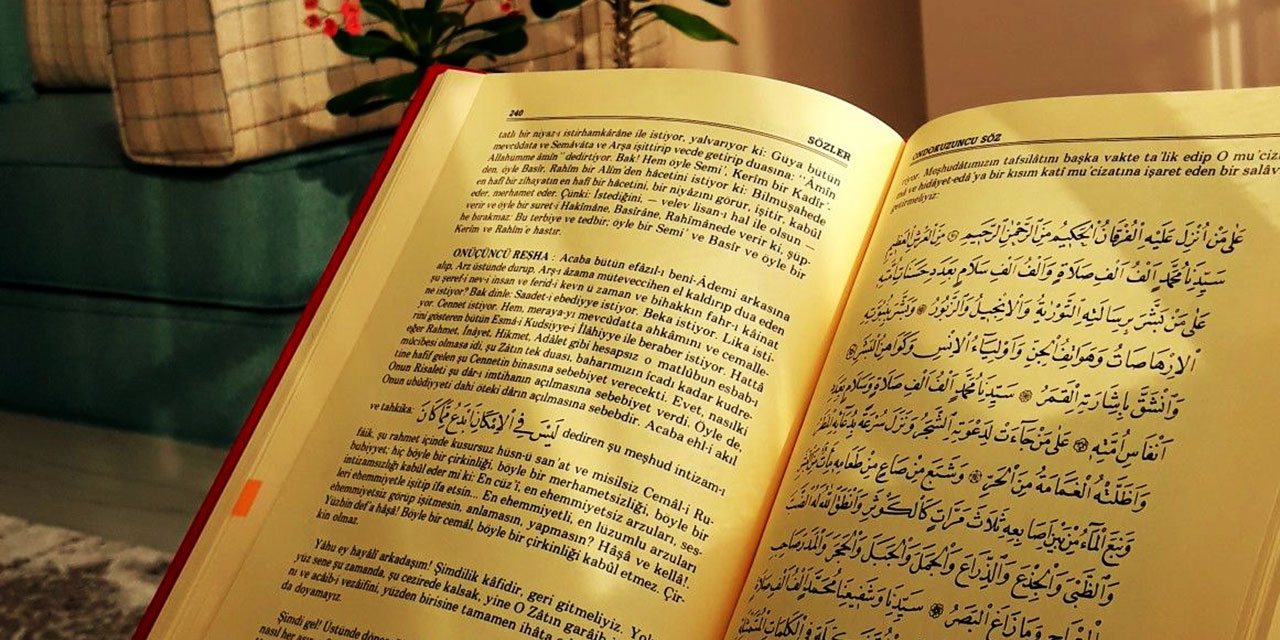 240
SÖZLER
tatlı bir niyaz-ı istirhamkârâne ile istiyor, yalvarıyor ki: Güya bütün
mevcudata ve Semâvâta ve Arşa işittirip vecde getirip duasına: "Âmîn
Allahümme âmîn" dedirtiyor. Bak! Hem öyle Semi', Kerîm bir Kadîr'-
den, öyle Basîr, Rahîm bir Alîm'den hâcetini istiyor ki: Bilmüşahede
en hafî bir zîhayatın en hafî bir hâcetini, bir niyazını görür, işitir, kabul
eder, merhamet eder. Çünki: İstediğini, — velev lisan-ı hal ile olsun —
verir ve öyle bir suret-i Hakîmâne, Basîrâne, Rahîmânede verir ki, şüp-
he bırakmaz: Bu terbiye ve tedbir; öyle bir Semi' ve Basîr ve öyle bir
Kerîm ve Rahîm'e hastır.
ONÜÇÜNCÜ REŞHA : Acaba bütün efâzıl-ı benî-Âdemi arkasına
alıp, Arz üstünde durup, Arş-ı âzama müteveccihen el kaldırıp dua eden
şu şeref-i nev-i insan ve ferîd-i kevn ü zaman ve bihakkın fahr-ı kâinat
ne istiyor? Bak dinle: Saadet-i ebediyye istiyor. Beka istiyor. Lika isti-
yor. Cennet istiyor. Hem, meraya-yı mevcudatta ahkâmını ve cemalle-
rini gösteren bütün Esmâ-i Kudsiyye-i İlâhiyye ile beraber istiyor. Hattâ
eğer Rahmet, İnâyet, Hikmet, Adâlet gibi hesapsız o matlûbun esbab-ı
mûcibesi olmasa idi, şu Zâtın tek duası, baharımızın îcadı kadar kudre-
tine hafif gelen şu Cennetin binasına sebebiyet verecekti. Evet, nasılki
Onun Risaleti şu dâr-ı imtihanın açılmasına sebebiyet verdi. Öyle de,
Onun ubûdiyyeti dahi öteki dârın açılmasına sebebdir. Acaba ehl-i akıl
ve tahkika: لَيْسَ فِي الْاِمْكَانِ اَبْدَعُ مِمَّا كَانَ dediren şu meşhud intizam-ı
fâik, şu rahmet içinde kusursuz hüsn-ü san'at ve misilsiz Cemâl-i Ru-
bubiyyet; hiç böyle bir çirkinliği, böyle bir merhametsizliği, böyle bir
intizamsızlığı kabûl eder mi ki: En cüz'î, en ehemmiyetsiz arzuları, ses-
leri ehemmiyetle işitip îfa etsin... En ehemmiyetli, en lüzumlu arzuları
ehemmiyetsiz görüp işitmesin, anlamasın, yapmasın? Hâşâ ve kellâ!.
Yüzbin def'a hâşâ! Böyle bir cemâl, böyle bir çirkinliği kabûl etmez. Çir-
kin olmaz.
Yâhu ey hayâlî arkadaşım! Şimdilik kâfidir, geri gitmeliyiz. Yok
yüz sene şu zamanda, şu cezirede kalsak, yine O Zâtın garâib
nı ve acâib-i vezâifini, yüzden birisine tamamen ihâta
da doyamayız.
Şimdi gel! Üstünde
nasıl her
ONDOKUZUNCU SÖZ
riyor. Meşhudâtımızın tafsilâtını başka vakte ta'lik edip O
ve hidâyet-edâ'ya bir kısım katî mu'cizatına işaret eden bir
getirmeliyiz:
عَلَى مَنْ اُنْزِلَ عَلَيْهِ الْفُرْقَانُ الْحَكِيمُ مِنَ الرَّحْمٰنِ الرَّحِيمِ مِنَ الْعَرْشِ الْعَظِيمِ
سَيِّدِنَا مُحَمَّدٍ اَلْفُ اَلْفِ صَلَاةٍ وَاَلْفُ اَلْفِ سَلَامٍ بِعَدَدِ حَسَنَاتِ
عَلَى مَنْ بَشَّرَ بِرِسَالَتِهِ التَّوْرٰيةُ وَالْاِنْجِيلُ وَالزَّبُورُ وَبَشَّرَ بِنُبُوَّتِهِ
الْاِرْهَاصَاتُ وَهَوَاتِفُ الْجِنِّ وَاَوْلِيَاءُ الْاِنْسِ وَكَوَاهِنُ الْبَشَرِ
وَانْشَقَّ بِاِشَارَتِهِ الْقَمَرُ سَيِّدِنَا مُحَمَّدٍ اَلْفُ اَلْفِ صَلَاةٍ وَسَلَامٍ بِعَدَدِ
اَنْفَاسِ اُمَّتِهِ عَلَى مَنْ جَاءَتْ لِدَعْوَتِهِ الشَّجَرُ وَنَزَلَ سُرْعَةً بِدُعَائِهِ الْمَطَرُ
وَاَظَلَّتْهُ الْغَمَامَةُ مِنَ الْحَرِّ وَشَبَعَ مِنْ صَاعٍ مِنْ طَعَامِهِ مِأٰتٌ مِنَ
وَنَبَعَ الْمَاءُ مِنْ بَيْنِ اَصَابِعِهِ ثَلَاثَ مَرَّاتٍ كَالْكَوْثَرِ وَاَنْطَقَ اللّٰهُ لَهُ الضَّبَّ
وَالظَّبْيَ وَالْجِذْعَ وَالذِّرَاعَ وَالْجَمَلَ وَالْجَبَلَ وَالْحَجَرَ وَالْمَدَرَ صَاحِبِ
وَمَا زَاغَ الْبَصَرُ سَيِّدِنَا وَشَفِيعِنَا مُحَمَّدٍ اَلْفُ اَلْفِ صَلَاةٍ